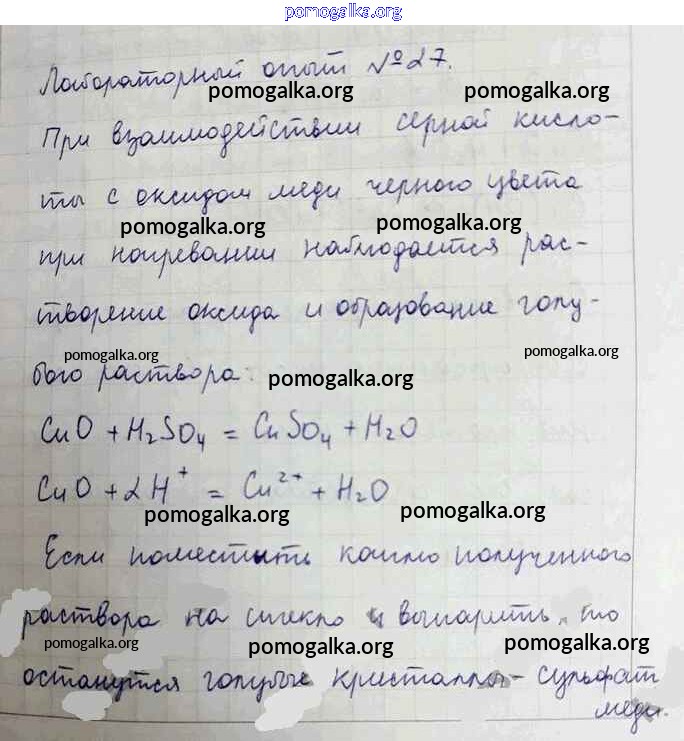 pomogalka.org
Лабораторный опыт №27.
pomogalka.org pomogalka.org
При взаимодействии серной кисло-
ты с оксидом меди черного цвета
pomogalka.org pomogalka.org
при нагревании наблюдается рас-
творение оксида и образование голу-
pomogalka.org pomogalka.org
бого раствора:
pomogalka.org
CuO + H₂SO₄ = CuSO₄ + H₂O
CuO + 2H⁺ = Cu²⁺ + H₂O
pomogalka.org pomogalka.org
Если поместить каплю полученного
раствора на стекло и выпарить, то
pomogalka.org pomogalka.org pomogalka.org
останутся голубые кристаллы - сульфат
меди.